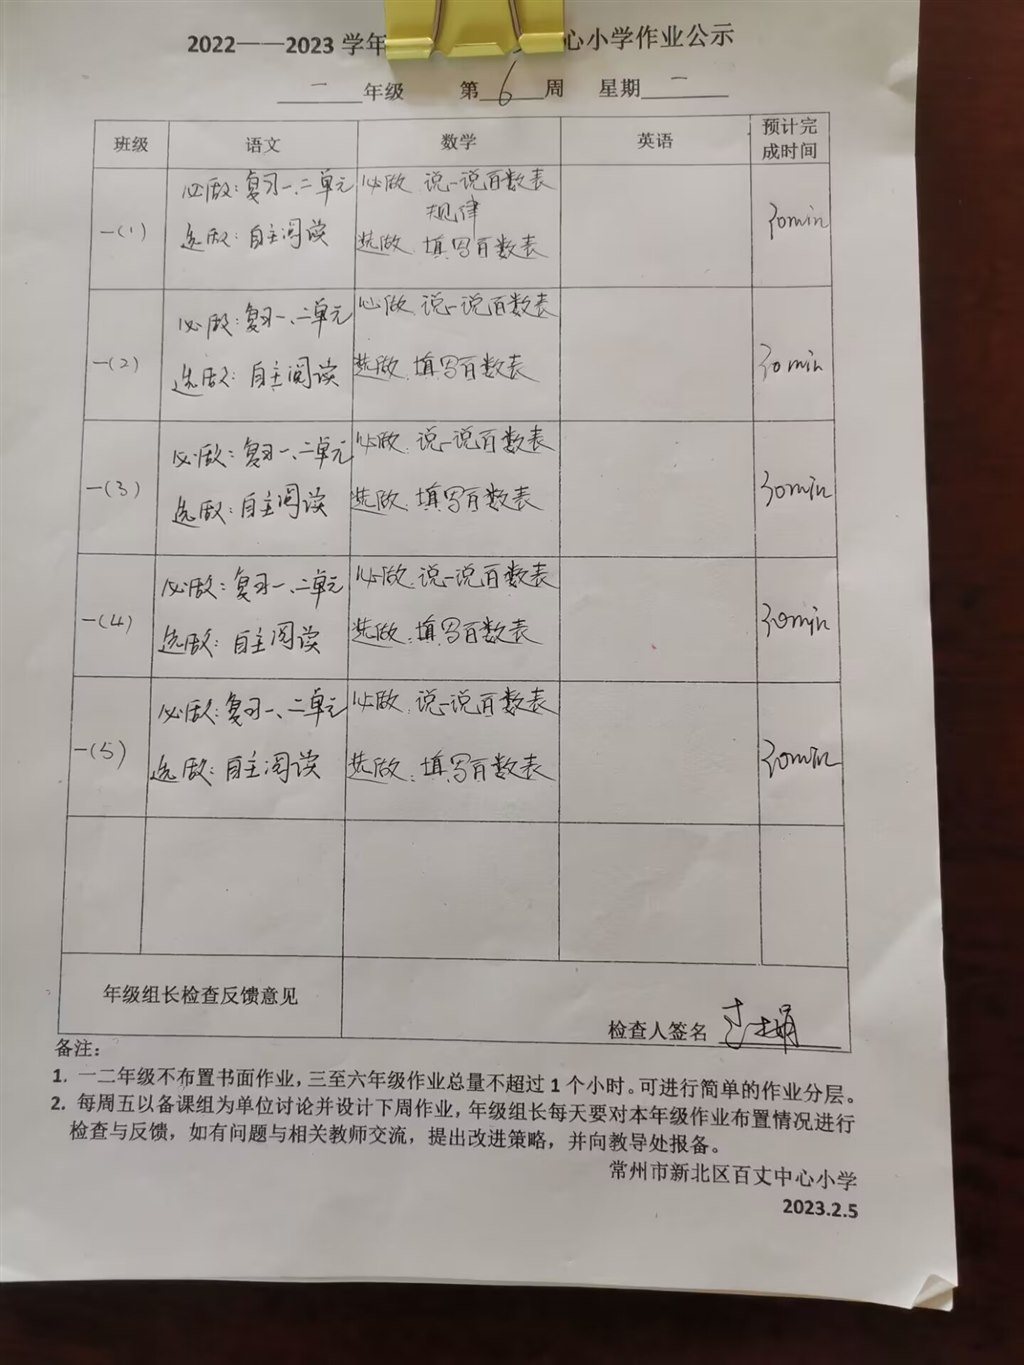 2022——2023 学年 心小学作业公示
二 年级 第 6 周 星期 二
班级 语文 数学 英语 预计完成时间
一(1) 必做：复习一、二单元 必做：说一说百数表规律 30min
选做：自主阅读 选做：填写百数表
一(2) 必做：复习一、二单元 必做：说一说百数表 30min
选做：自主阅读 选做：填写百数表
一(3) 必做：复习一、二单元 必做：说一说百数表 30min
选做：自主阅读 选做：填写百数表
一(4) 必做：复习一、二单元 必做：说一说百数表 30min
选做：自主阅读 选做：填写百数表
一(5) 必做：复习一、二单元 必做：说一说百数表 30min
选做：自主阅读 选做：填写百数表
年级组长检查反馈意见
检查人签名
备注：
1. 一二年级不布置书面作业，三至六年级作业总量不超过 1 个小时。可进行简单的作业分层。
2. 每周五以备课组为单位讨论并设计下周作业，年级组长每天要对本年级作业布置情况进行
检查与反馈，如有问题与相关教师交流，提出改进策略，并向教导处报备。
常州市新北区百丈中心小学
2023.2.5